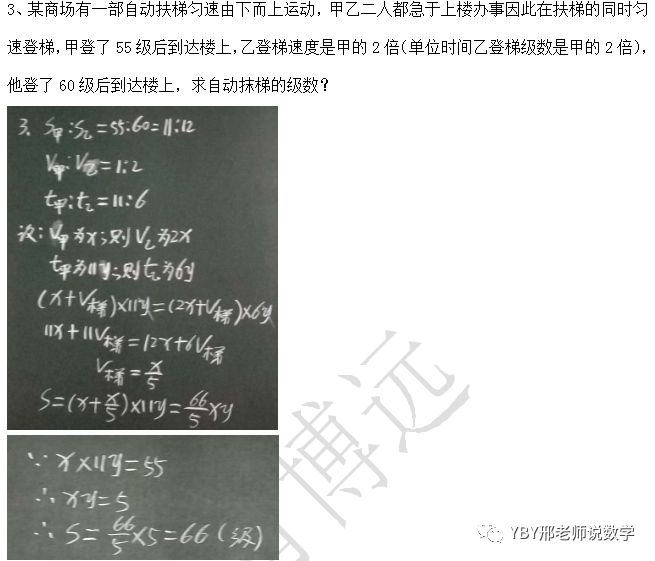 3、某商场有一部自动扶梯匀速由下而上运动，甲乙二人都急于上楼办事因此在扶梯的同时匀
速登梯，甲登了 55 级后到达楼上，乙登梯速度是甲的 2 倍（单位时间乙登梯级数是甲的 2 倍），
他登了 60 级后到达楼上，求自动抹梯的级数？
3、S甲:S乙=55:60=11:12
V甲:V乙=1:2
t甲:t乙=11:6
设：V甲为x；则V乙为2x
t甲为11y；则t乙为6y
(x+V梯)×11y=(2x+V梯)×6y
11x+11V梯=12x+6V梯
V梯=x/5
S=(x+x/5)×11y=66/5xy
∵ x×11y=55
∴ xy=5
∴ S=66/5×5=66(级)
博远
YBY邢老师说数学